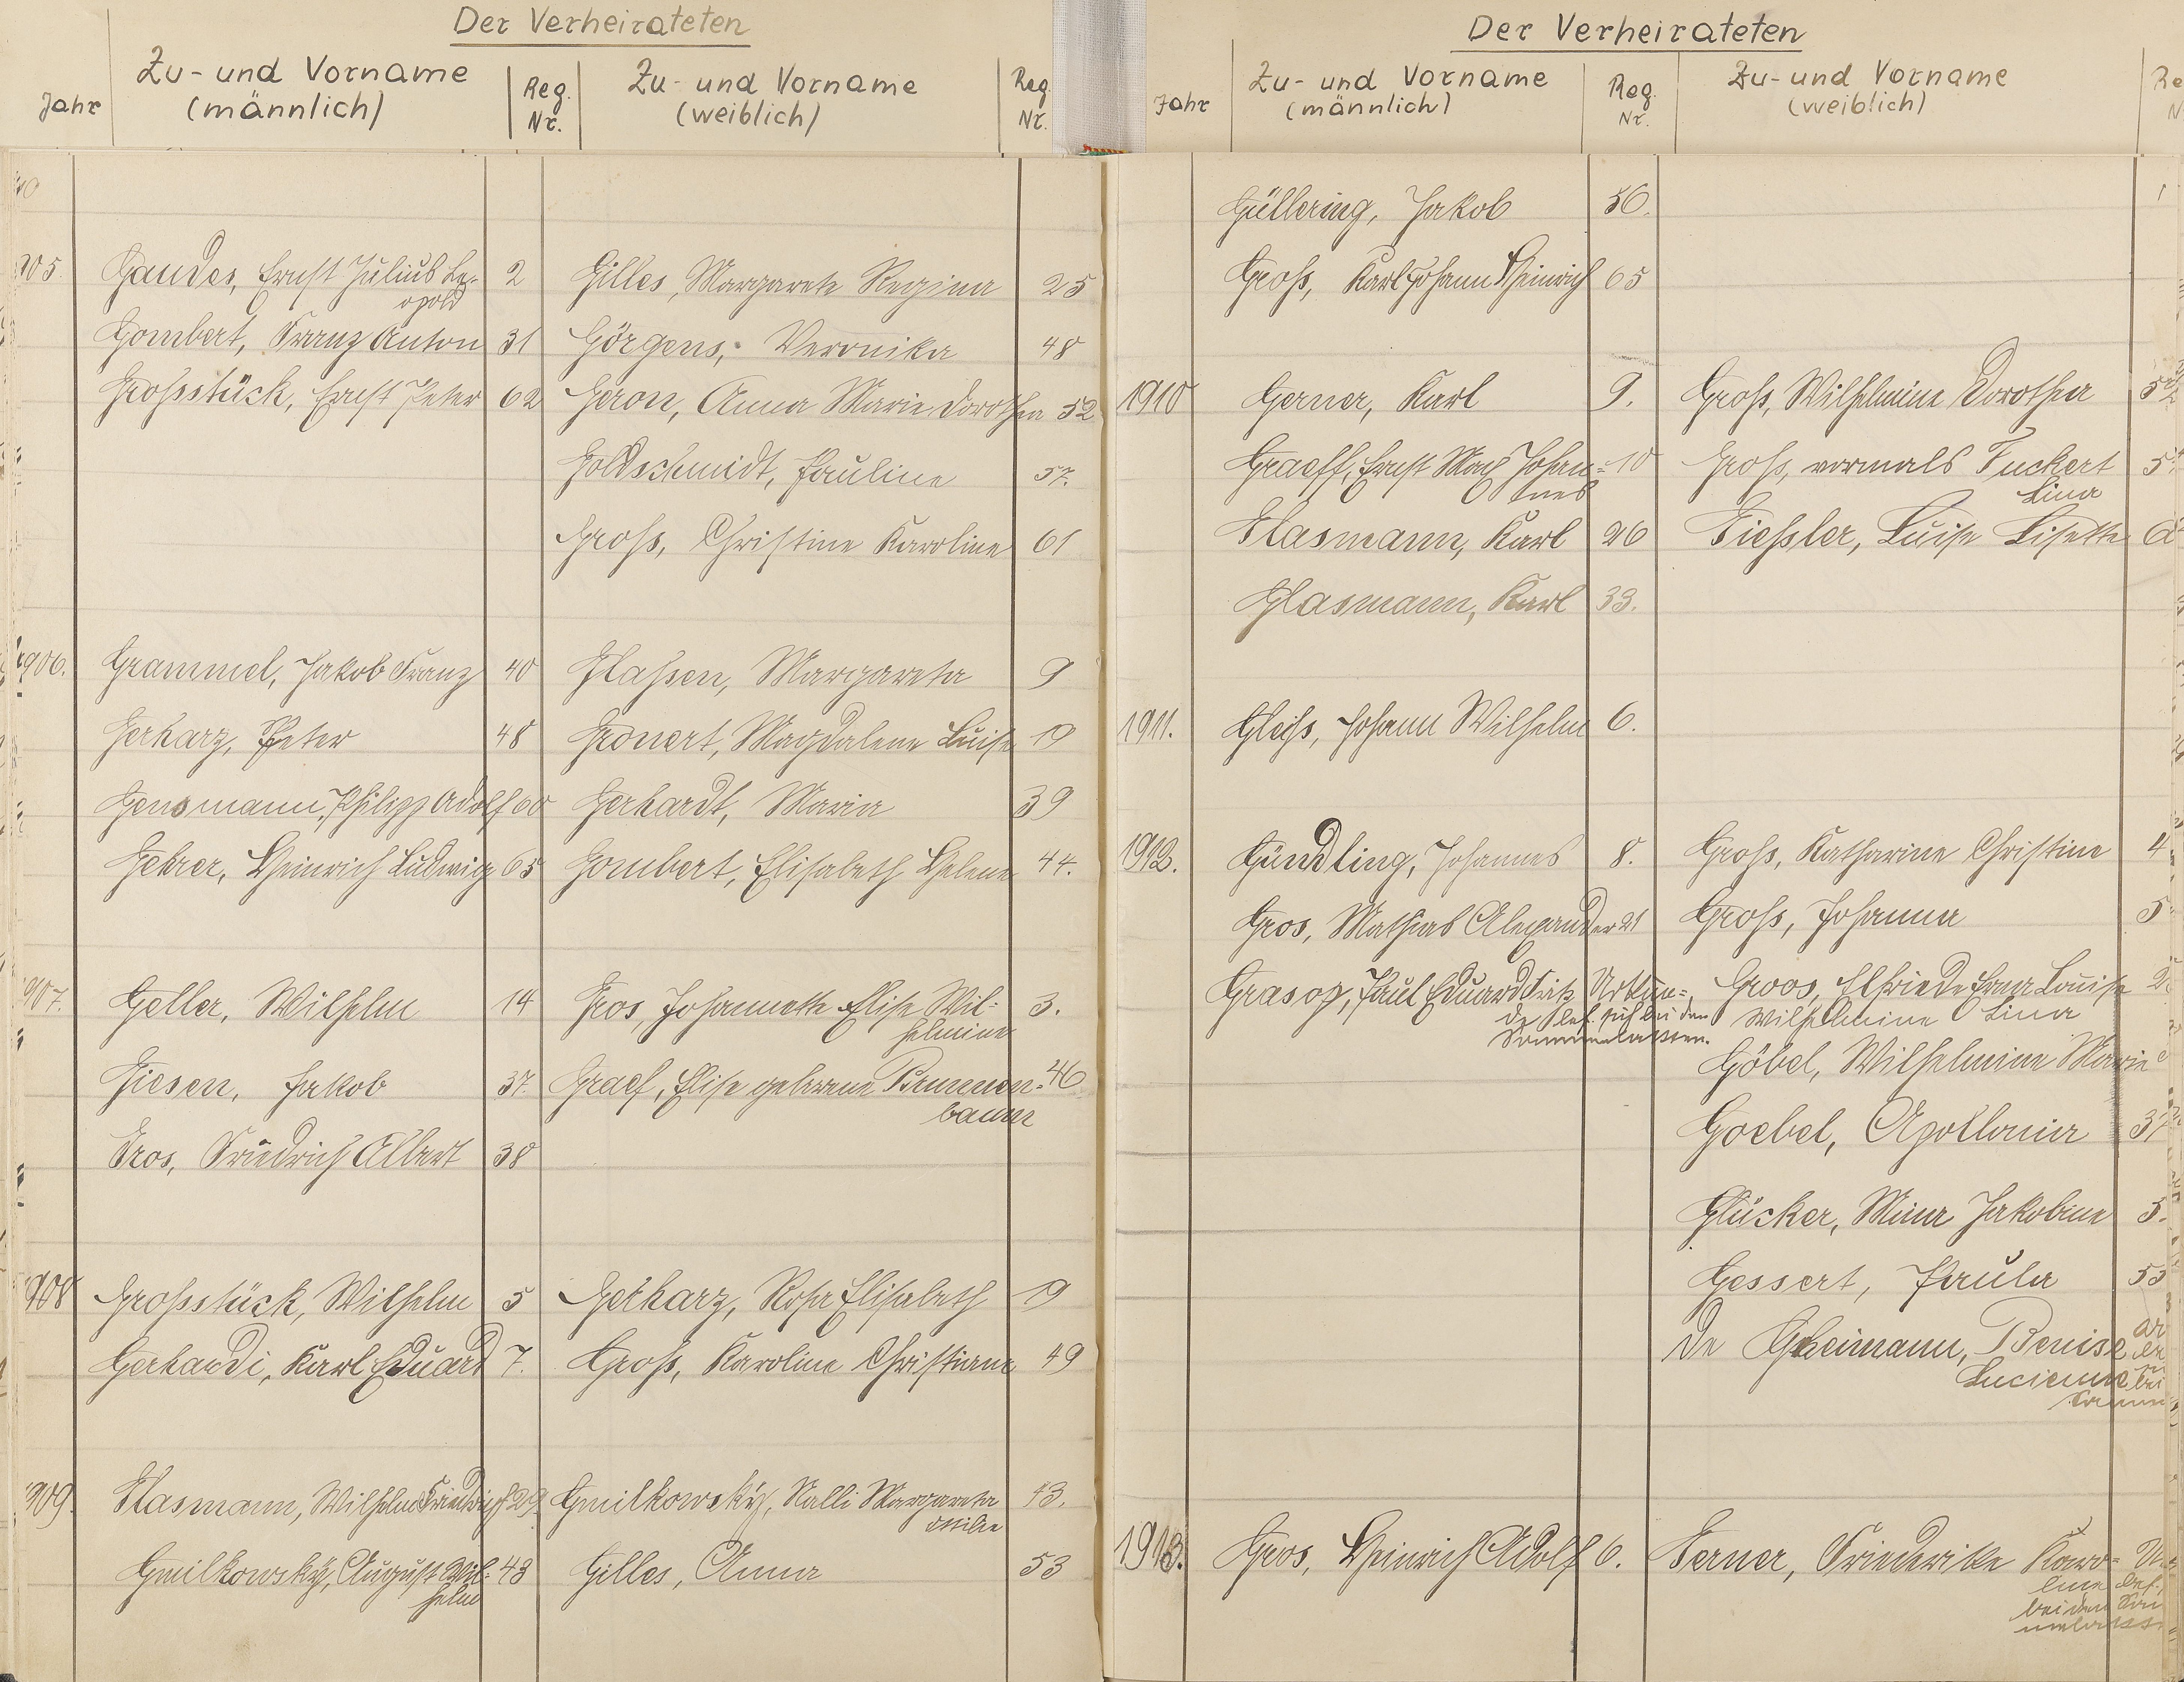 Der Verheirateten
Jahr
Zu- und Vorname
(männlich)
Reg.
Nr.
Zu- und Vorname
(weiblich)
Reg.
Nr.
905. Gaudes, Ernst Julius Le- 2 Gilles, Margarete Regina 25
opold
Gombert, Franz Anton 31 Görgens, Veronika 48
Großstück, Ernst Peter 62 Geron, Anna Marie Dorothea 52
Goldschmidt, Pauline 57.
Groß, Christine Karoline 61
1906. Grammel, Jakob Franz 40 Glaßen, Margareta 9
Gerharz, Peter 48 Gronert, Magdalene Luise 19
Gensmann, Philipp Adolf 60 Gerhardt, Maria 39
Gehrer, Heinrich Ludwig 65 Gombert, Elisabeth Helene 44.
907. Geller, Wilhelm 14 Gros, Johannette Elise Wil- 3.
helmine
Giesen, Jakob 37. Graef, Elise geborene Brunnen- 46
baum
Gros, Friedrich Albert 38
908 Großstück, Wilhelm 5 Gerharz, Rosa Elisabeth 19
Gerhardi, Karl Eduard 7. Groß, Karoline Christiane 49
909. Glasmann, Wilhelm Friedrich 29. Gmilkowsky, Nalli Margareta 43.
Ottilie
Gmilkowsky, August Wil- 43 Gilles, Anna 53
helm
Der Verheirateten
Jahr
Zu- und Vorname
(männlich)
Reg.
Nr.
Zu- und Vorname
(weiblich)
Re
N
Güllering, Jakob 56.
Groß, Karl Johann Heinrich 65
1910 Gerner, Karl 9. Groß, Wilhelmine Dorothea
Graeff, Ernst Max Johan- 10 Groß, vormals Fuckert 5
nes Lina
Glasmann, Karl 26 Gießler, Luise Lisette
Glasmann, Karl 33.
1911. Gleiß, Johann Wilhelm 6.
1912. Gündling, Johannes 8. Groß, Katharine Christine 4
Gros, Mathias Alexander 21 Groß, Johanna 5
Grasop, Paul Eduard Fritz Urkun- Groos, Elfriede Erna Louise 2
de bef. sich bei den Wilhelmine Lina
Sammelakten.
Göbel, Wilhelmine Marie
Goebel, Apollonia 37
Glücker, Mina Jakobine 5.
Gessert, Paula 53
De Gheimann, Denise
Lucienne bei
Samm
1913. Gros, Heinrich Adolf 6. Gerner, Friederike Karo- U
line bef.
bei den Sam
melakten